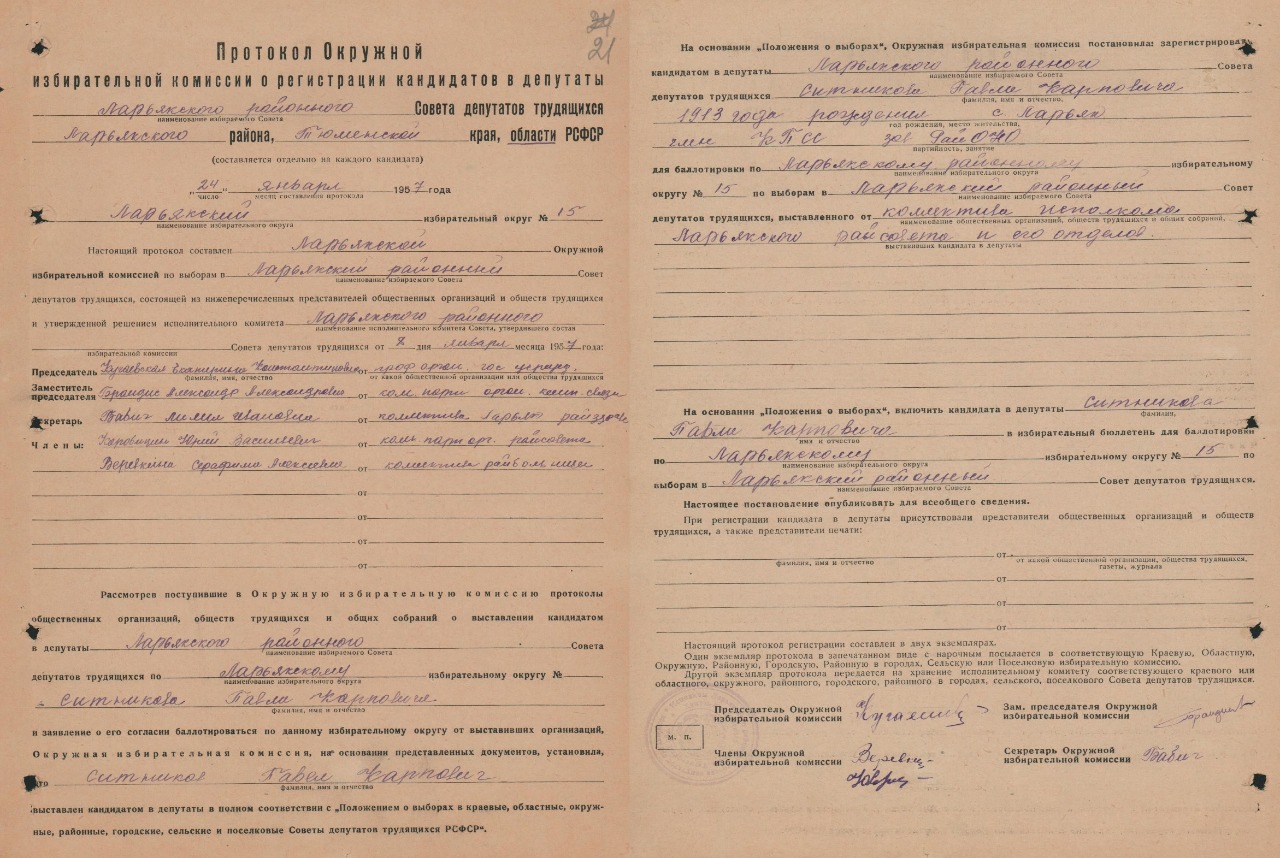 21
Протокол Окружной
избирательной комиссии о регистрации кандидатов в депутаты
Ларьякского районного Совета депутатов трудящихся
наименование избираемого Совета
Ларьякского района, Тюменской края, области РСФСР
(составляется отдельно на каждого кандидата)
„24“ января 1957 года
число месяц составления протокола
Ларьякский избирательный округ № 15
наименование избирательного округа
Настоящий протокол составлен Ларьякской Окружной
избирательной комиссией по выборам в Ларьякский районный Совет
наименование избираемого Совета
депутатов трудящихся, состоящей из нижеперечисленных представителей общественных организаций и обществ трудящихся
и утвержденной решением исполнительного комитета Ларьякского районного
наименование исполнительного комитета Совета, утвердившего состав
Совета депутатов трудящихся от 8 дня января месяца 1957 года:
избирательной комиссии
Председатель Екатерина Константиновна от проф орган. гос
фамилия, имя, отчество от какой общественной организации или общества трудящихся
Заместитель
председателя Александр Александрович от ком. парт орган. конт. связи
Секретарь Бабич Лилия Ивановна от коллектива Ларьяк
Члены: Юрий Васильевич от ком парт орг. райсовета
Веревкина Серафима Алексеевна от коллектива райбольницы
от
от
от
от
Рассмотрев поступившие в Окружную избирательную комиссию протоколы
общественных организаций, обществ трудящихся и общих собраний о выставлении кандидатом
в депутаты Ларьякского районного Совета
наименование избираемого Совета
депутатов трудящихся по Ларьякскому избирательному округу №
наименование избирательного округа
Ситникова Павла Карповича
фамилия, имя и отчество
и заявление о его согласии баллотироваться по данному избирательному округу от выставивших организаций,
Окружная избирательная комиссия, на основании представленных документов, установила,
что Ситников Павел Карпович
фамилия, имя и отчество
выставлен кандидатом в депутаты в полном соответствии с „Положением о выборах в краевые, областные, окруж-
ные, районные, городские, сельские и поселковые Советы депутатов трудящихся РСФСР“.
На основании „Положения о выборах“, Окружная избирательная комиссия постановила: зарегистрировать
кандидатом в депутаты Ларьякского районного Совета
наименование избираемого Совета
депутатов трудящихся Ситникова Павла Карповича
фамилия, имя и отчество,
1913 года рождения с Ларьяк
год рождения, место жительства,
член КПСС зав РайОНО
партийность, занятие
для баллотировки по Ларьякскому районному избирательному
наименование избирательного округа
округу № 15 по выборам в Ларьякский районный Совет
наименование избираемого Совета
депутатов трудящихся, выставленного от коллектива исполкома
наименование общественных организаций, обществ трудящихся и общих собраний,
Ларьякского райсовета и его отделов.
выставивших кандидата в депутаты
На основании „Положения о выборах“, включить кандидата в депутаты Ситникова
фамилия,
Павла Карповича в избирательный бюллетень для баллотировки
имя и отчество
по Ларьякскому избирательному округу № 15 по
наименование избирательного округа
выборам в Ларьякский районный Совет депутатов трудящихся.
наименование избираемого Совета
Настоящее постановление опубликовать для всеобщего сведения.
При регистрации кандидата в депутаты присутствовали представители общественных организаций и обществ
трудящихся, а также представители печати:
от
фамилия, имя и отчество от какой общественной организации, общества трудящихся,
газеты, журнала
от
от
от
Настоящий протокол регистрации составлен в двух экземплярах.
Один экземпляр протокола в запечатанном виде с нарочным посылается в соответствующую Краевую, Областную,
Окружную, Районную, Городскую, Районную в городах, Сельскую или Поселковую избирательную комиссию.
Другой экземпляр протокола передается на хранение исполнительному комитету соответствующего краевого или
областного, окружного, районного, городского, районного в городах, сельского, поселкового Совета депутатов трудящихся.
Председатель Окружной
избирательной комиссии
Зам. председателя Окружной
избирательной комиссии
м. п.
Члены Окружной
избирательной комиссии
Секретарь Окружной
избирательной комиссии Бабич